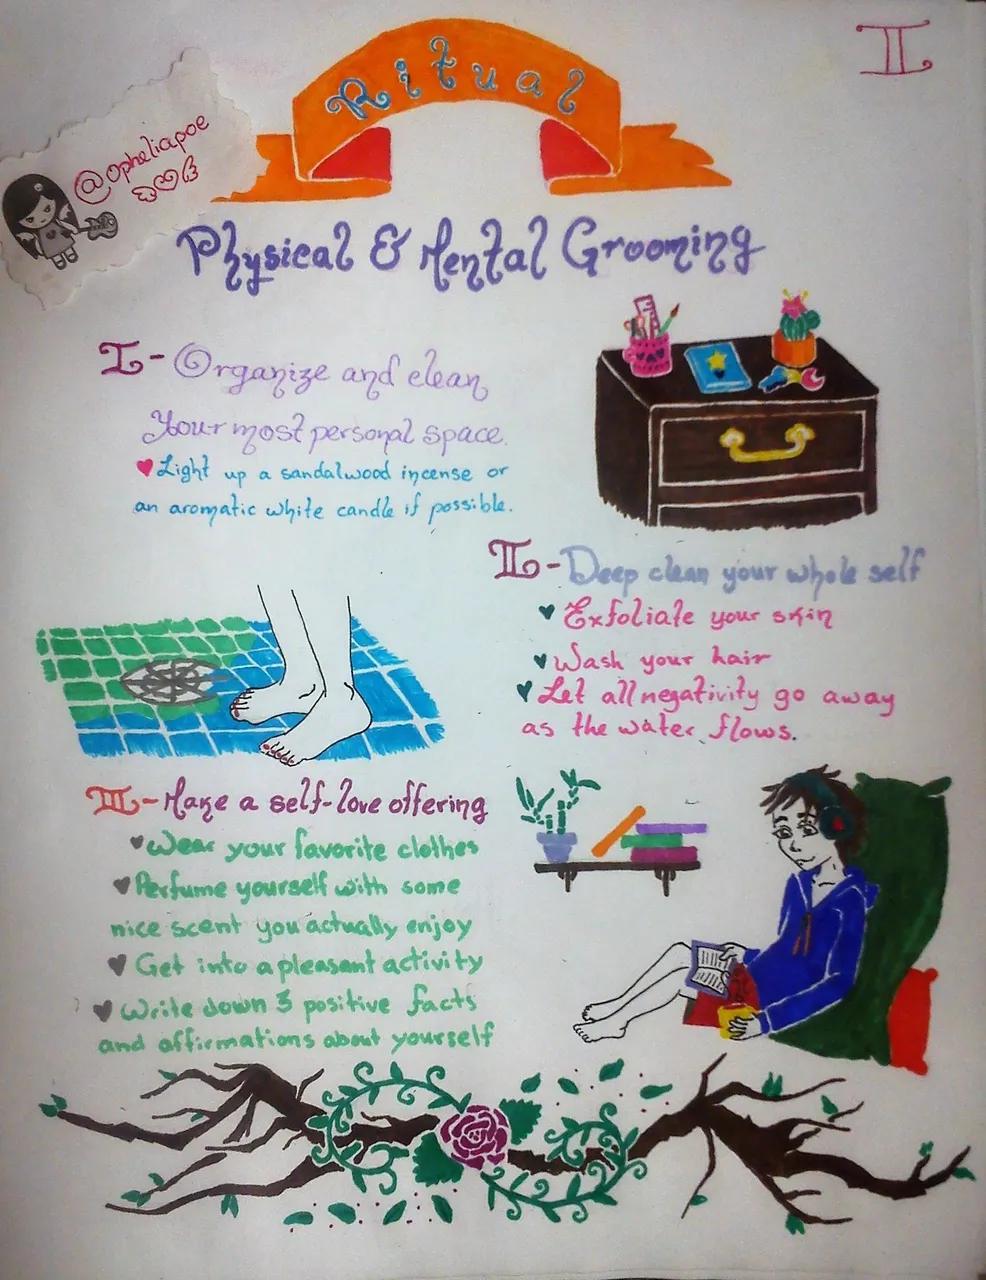 II
Ritual
@Opheliapoe
Physical & Mental Grooming
I- Organize and clean
Your most personal space.
Light up a sandalwood incense or
an aromatic white candle if possible.
II- Deep clean your whole self
Exfoliate your skin
Wash your hair
Let all negativity go away
as the water flows.
III- Make a self-love offering
Wear your favorite clothes
Perfume yourself with some
nice scent you actually enjoy
Get into a pleasant activity
Write down 3 positive facts
and affirmations about yourself